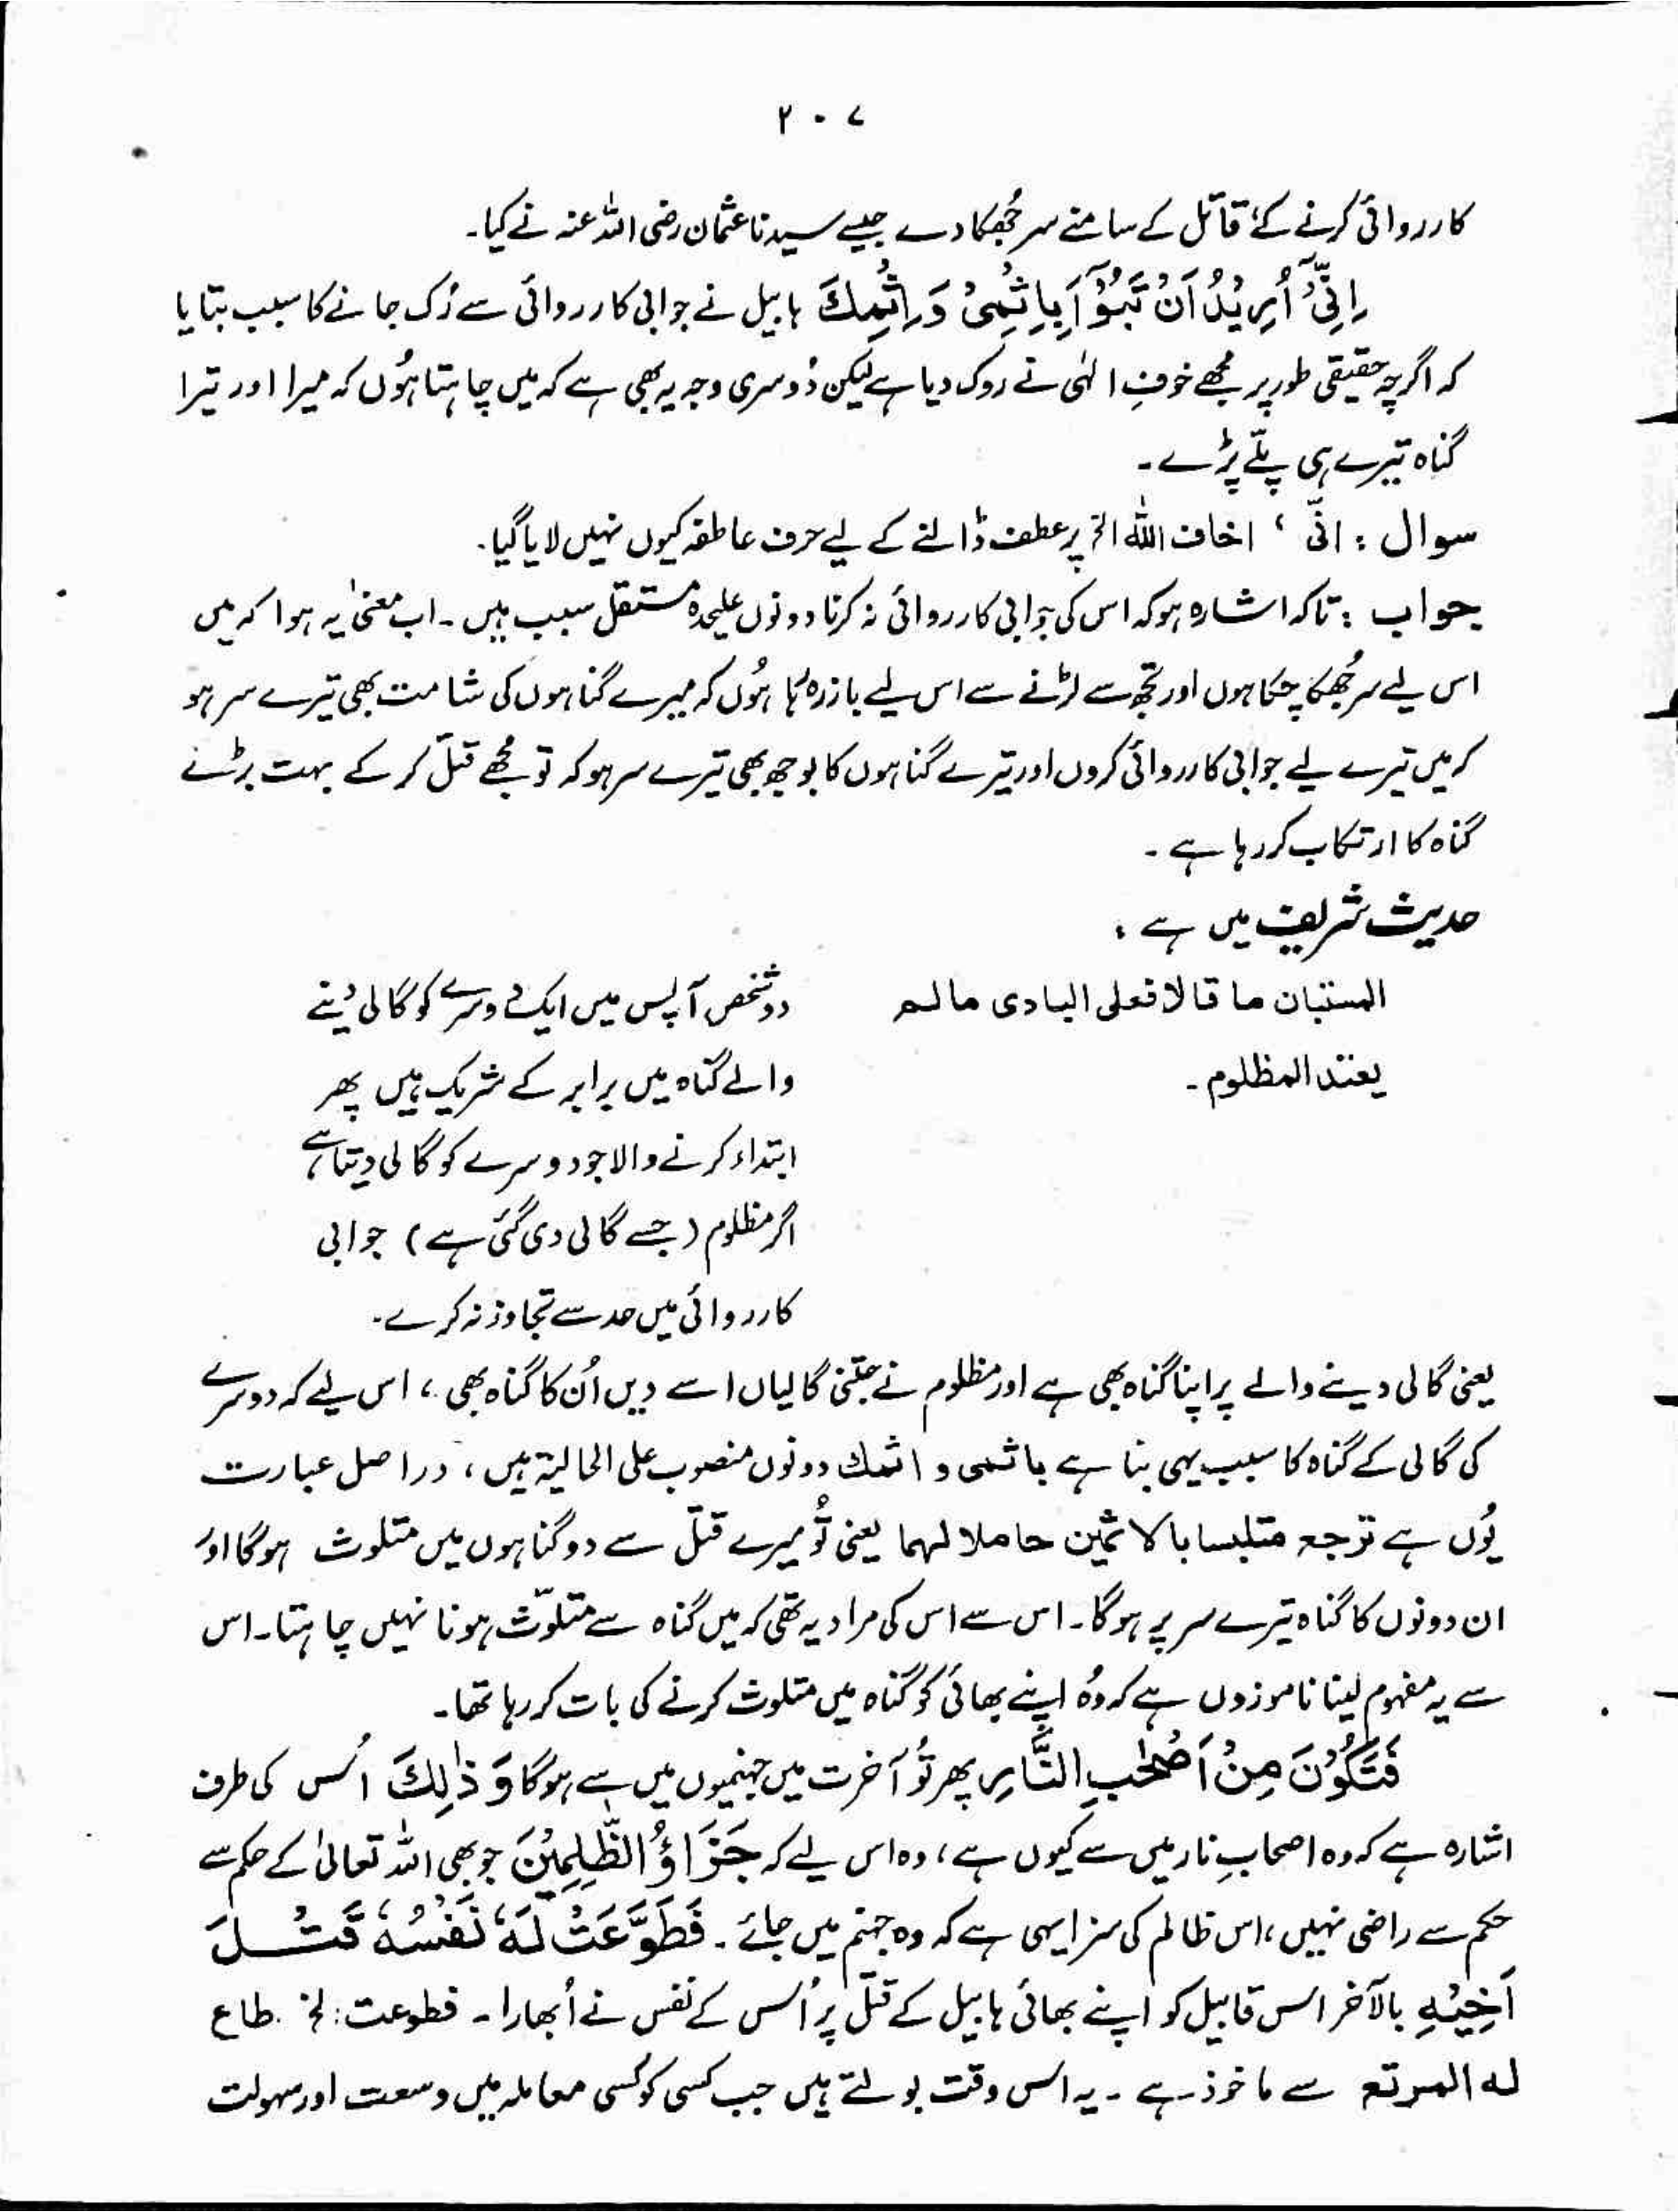 ۲۰۷
کارروائی کرنے کے قاتل کے سامنے سر جُھکا دے جیسے سیدنا عثمان رضی اللہ عنہ نے کیا۔
اِنِّیْۤ اُرِیْدُ اَنْ تَبُوْٓاَ بِاِثْمِیْ وَ اِثْمِكَ ہابیل نے جوابی کارروائی سے رُک جانے کا سبب بتایا
کہ اگرچہ حقیقی طور پر مجھے خوفِ الٰہی نے روک دیا ہے لیکن دُوسری وجہ یہ بھی ہے کہ میں چاہتا ہُوں کہ میرا اور تیرا
گناہ تیرے ہی پلّے پڑے۔
سوال : انّی ، اخاف اللّٰہ الخ پر عطف ڈالنے کے لیے حرف عاطفہ کیوں نہیں لایا گیا۔
جواب : تاکہ اشارہ ہو کہ اس کی جوابی کارروائی نہ کرنا دونوں علیحدہ مستقل سبب ہیں۔ اب معنیٰ یہ ہوا کہ میں
اس لیے سر جُھکا چکا ہوں اور تجھ سے لڑنے سے اس لیے باز رہ رہا ہُوں کہ میرے گناہوں کی شامت بھی تیرے سر ہو
کہ میں تیرے لیے جوابی کارروائی کروں اور تیرے گناہوں کا بوجھ بھی تیرے سر ہو کہ تو مجھے قتل کر کے بہت بڑے
گناہ کا ارتکاب کر رہا ہے۔
حدیث شریف میں ہے :
المستبان ما قالا فعلی البادی مالم
یعتد المظلوم۔
دو شخص آپس میں ایک دوسرے کو گالی دینے
والے گناہ میں برابر کے شریک ہیں پھر
ابتداء کرنے والا جو دوسرے کو گالی دیتا ہے
اگر مظلوم (جسے گالی دی گئی ہے) جوابی
کارروائی میں حد سے تجاوز نہ کرے۔
یعنی گالی دینے والے پر اپنا گناہ بھی ہے اور مظلوم نے جتنی گالیاں اسے دیں اُن کا گناہ بھی، اس لیے کہ دوسرے
کی گالی کے گناہ کا سبب یہی بنا ہے باثمی و اثمك دونوں منصوب علی الحالیۃ ہیں، دراصل عبارت
یُوں ہے ترجع متلبسا بالاثمین حاملا لہما یعنی تُو میرے قتل سے دو گناہوں میں متلوث ہوگا اور
ان دونوں کا گناہ تیرے سر پر ہوگا۔ اس سے اس کی مراد یہ تھی کہ میں گناہ سے متلوّث ہونا نہیں چاہتا۔ اس
سے یہ مفہوم لینا ناموزوں ہے کہ وُہ اپنے بھائی کو گناہ میں متلوث کرنے کی بات کر رہا تھا۔
فَتَكُوْنَ مِنْ اَصْحٰبِ النَّارِ پھر تُو آخرت میں جہنمیوں میں سے ہوگا وَ ذٰلِكَ اُس کی طرف
اشارہ ہے کہ وہ اصحابِ نار میں سے کیوں ہے، وہ اس لیے کہ جَزَاؤُ الظّٰلِمِیْنَ جو بھی اللہ تعالیٰ کے حکم سے
حکم سے راضی نہیں، اس ظالم کی سزا یہی ہے کہ وہ جہنم میں جائے۔ فَطَوَّعَتْ لَهٗ نَفْسُهٗ قَتْلَ
اَخِیْهِ بالآخر اس قابیل کو اپنے بھائی ہابیل کے قتل پر اُس کے نفس نے اُبھارا۔ فطوعت الخ طاع
له المرتع سے ماخوذ ہے۔ یہ اس وقت بولتے ہیں جب کسی کو کسی معاملہ میں وسعت اور سہولت